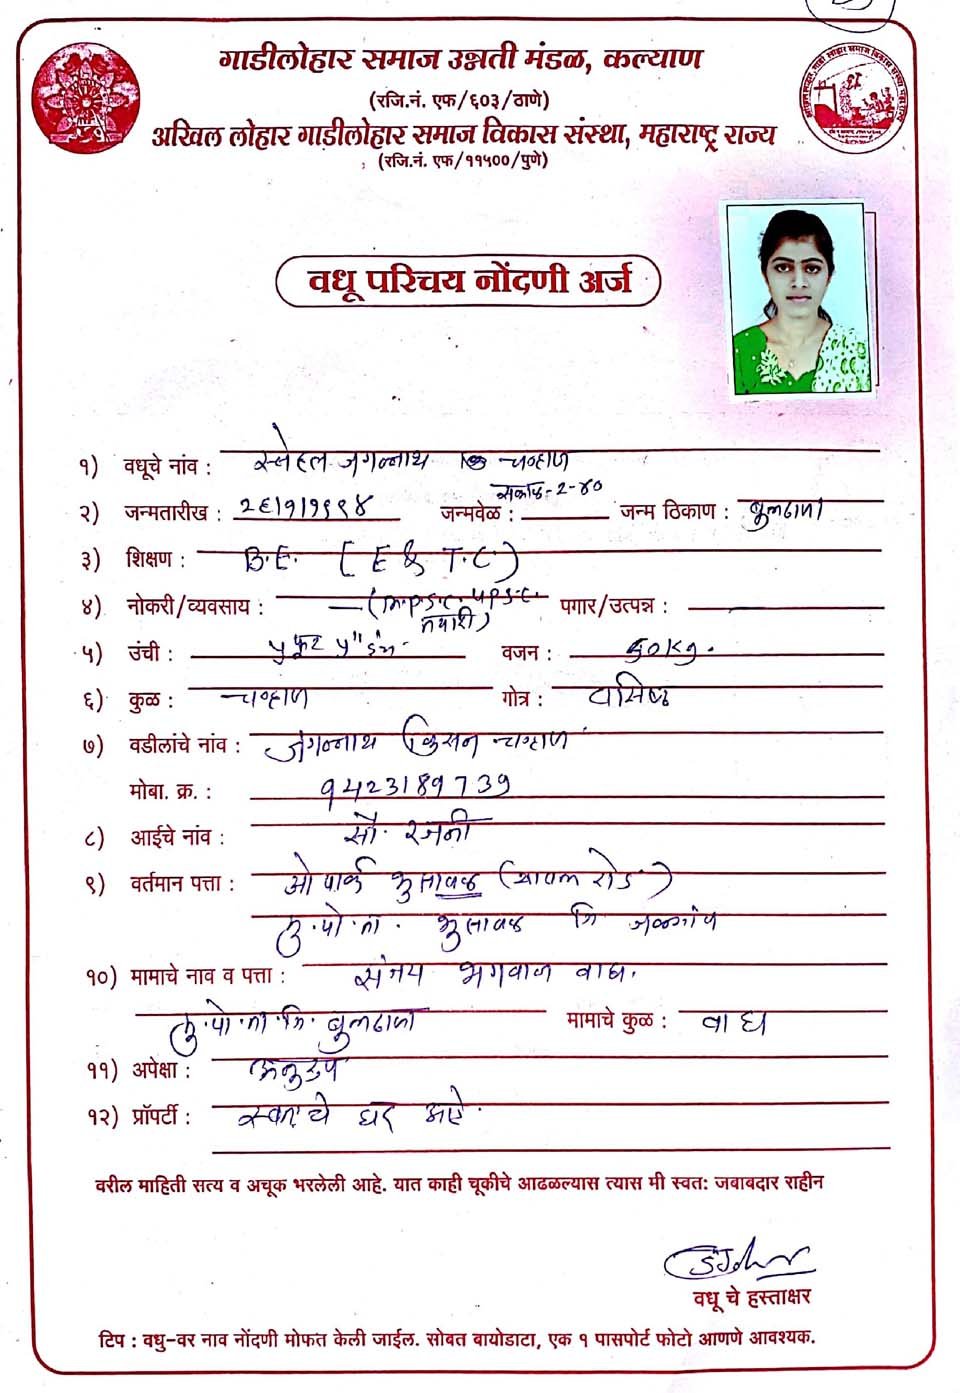 गाडीलोहार समाज उन्नती मंडळ, कल्याण
(रजि.नं. एफ/६०३/ठाणे)
अखिल लोहार गाडीलोहार समाज विकास संस्था, महाराष्ट्र राज्य
(रजि.नं. एफ/११५००/पुणे)
वधू परिचय नोंदणी अर्ज
१) वधूचे नांव : स्नेहल जगन्नाथ चव्हाण
२) जन्मतारीख : २६/१/१९९४ जन्मवेळ : सकाळ-२-४० जन्म ठिकाण : बुलढाणा
३) शिक्षण : B.E. (E & T.C.)
४) नोकरी/व्यवसाय : — (m.p.s.c. u.p.s.c. तयारी) पगार/उत्पन्न : —
५) उंची : ५ फूट ५" इंच वजन : 50 kg.
६) कुळ : चव्हाण गोत्र : वासिष्ठ
७) वडीलांचे नांव : जगन्नाथ किसन चव्हाण
मोबा. क्र. : 9423189739
८) आईचे नांव : सौ. रजनी
९) वर्तमान पत्ता : ओ पार्क भुसावळ ( रोड)
मु.पो.ता. भुसावळ जि जळगांव
१०) मामाचे नाव व पत्ता : संजय भगवान वाघ.
मु.पो.ता.जि. बुलढाणा मामाचे कुळ : वाघ
११) अपेक्षा : अनुरूप
१२) प्रॉपर्टी : स्वताःचे घर आहे.
वरील माहिती सत्य व अचूक भरलेली आहे. यात काही चूकीचे आढळल्यास त्यास मी स्वत: जबाबदार राहीन
वधू चे हस्ताक्षर
टिप : वधु-वर नाव नोंदणी मोफत केली जाईल. सोबत बायोडाटा, एक १ पासपोर्ट फोटो आणणे आवश्यक.